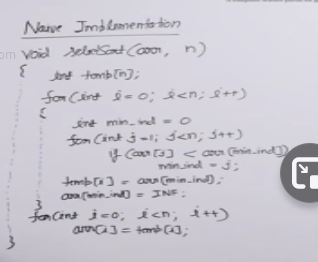 Naive Implementation
void selectSort(arr, n)
{
int temp[n];
for(int i=0; i<n; i++)
{
int min_ind = 0
for(int j=1; j<n; j++)
if (arr[j] < arr[min_ind])
min_ind = j;
temp[i] = arr[min_ind];
arr[min_ind] = INF;
}
for(int i=0; i<n; i++)
arr[i] = temp[i];
}